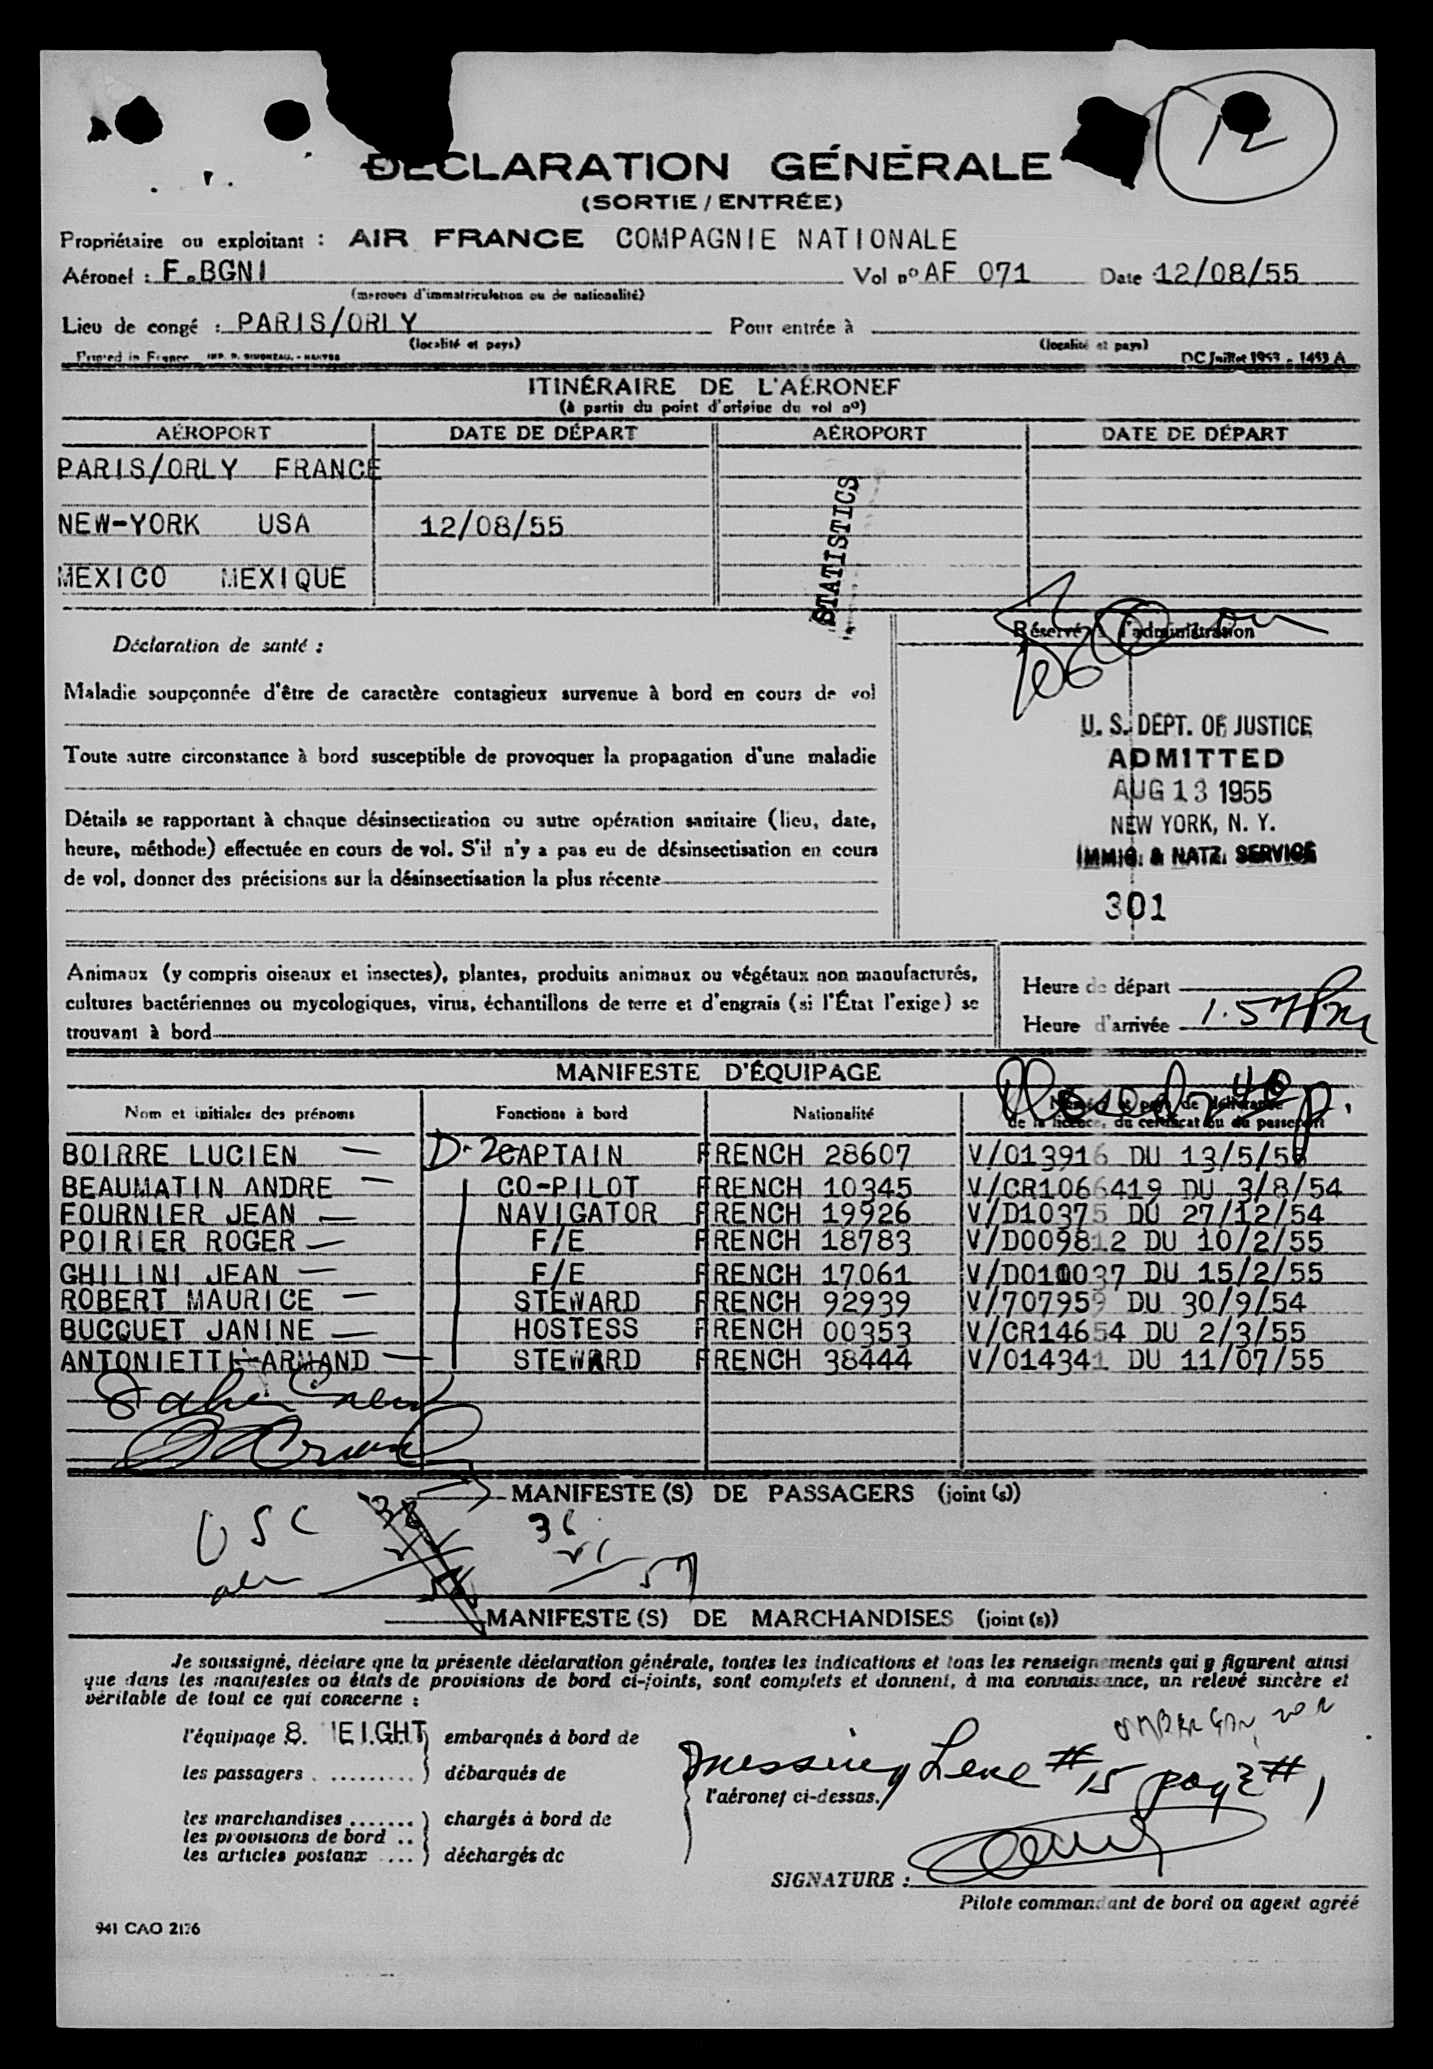 12
DÉCLARATION GÉNÉRALE
(SORTIE / ENTRÉE)
Propriétaire ou exploitant : AIR FRANCE COMPAGNIE NATIONALE
Aéronef : F.BGNI Vol nº AF 071 Date 12/08/55
(marques d'immatriculation ou de nationalité)
Lieu de congé : PARIS/ORLY Pour entrée à
(localité et pays) (localité et pays)
Printed in France IMP. R. SIMONEAU. - NANTES DC Juillet 1953 - 1453 A
ITINÉRAIRE DE L'AÉRONEF
(à partir du point d'origine du vol nº)
AÉROPORT DATE DE DÉPART AÉROPORT DATE DE DÉPART
PARIS/ORLY FRANCE
NEW-YORK USA 12/08/55
MEXICO MEXIQUE
STATISTICS
Réservé à l'administration
Déclaration de santé :
Maladie soupçonnée d'être de caractère contagieux survenue à bord en cours de vol
Toute autre circonstance à bord susceptible de provoquer la propagation d'une maladie
Détails se rapportant à chaque désinsectisation ou autre opération sanitaire (lieu, date,
heure, méthode) effectuée en cours de vol. S'il n'y a pas eu de désinsectisation en cours
de vol, donner des précisions sur la désinsectisation la plus récente
U. S. DEPT. OF JUSTICE
ADMITTED
AUG 13 1955
NEW YORK, N. Y.
IMMIG. & NATZ. SERVICE
301
Animaux (y compris oiseaux et insectes), plantes, produits animaux ou végétaux non manufacturés,
cultures bactériennes ou mycologiques, virus, échantillons de terre et d'engrais (si l'État l'exige) se
trouvant à bord
Heure de départ
Heure d'arrivée 1.57 PM
MANIFESTE D'ÉQUIPAGE
Nom et initiales des prénoms Fonctions à bord Nationalité Numéro et pays de délivrance
de la licence, du certificat ou du passeport
BOIRRE LUCIEN — D-2 CAPTAIN FRENCH 28607 V/013916 DU 13/5/55
BEAUMATIN ANDRE — CO-PILOT FRENCH 10345 V/CR1066419 DU 3/8/54
FOURNIER JEAN — NAVIGATOR FRENCH 19926 V/D10375 DU 27/12/54
POIRIER ROGER — F/E FRENCH 18783 V/D009812 DU 10/2/55
GHILINI JEAN — F/E FRENCH 17061 V/D010037 DU 15/2/55
ROBERT MAURICE — STEWARD FRENCH 92939 V/707959 DU 30/9/54
BUCQUET JANINE — HOSTESS FRENCH 00353 V/CR14654 DU 2/3/55
ANTONIETTI-ARMAND — STEWARD FRENCH 38444 V/014341 DU 11/07/55
MANIFESTE (S) DE PASSAGERS (joint (s))
USC 36
21
57
MANIFESTE (S) DE MARCHANDISES (joint (s))
Je soussigné, déclare que la présente déclaration générale, toutes les indications et tous les renseignements qui y figurent ainsi
que dans les manifestes ou états de provisions de bord ci-joints, sont complets et donnent, à ma connaissance, un relevé sincère et
véritable de tout ce qui concerne :
l'équipage 8. EIGHT ) embarqués à bord de
les passagers . ......... ) débarqués de
missing Line # 15 page # 1
l'aéronef ci-dessus.
les marchandises ....... ) chargés à bord de
les provisions de bord ..
les articles postaux .... ) déchargés de
SIGNATURE :
Pilote commandant de bord ou agent agréé
941 CAO 2176